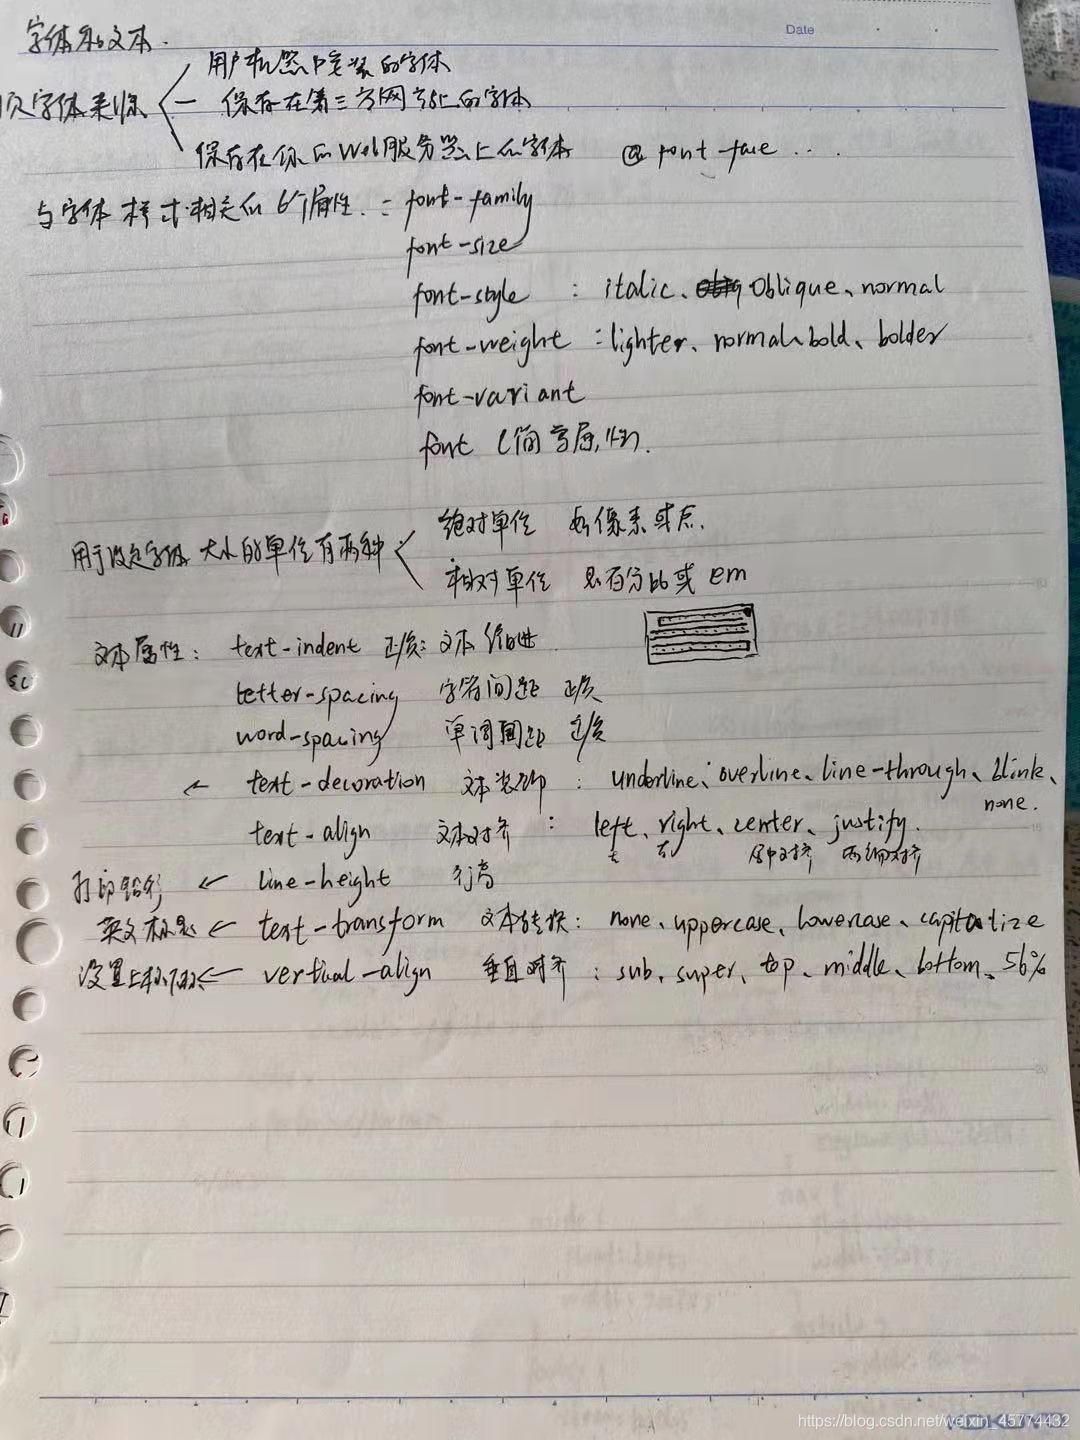 Date
字体和文本.
用户机器中安装的字体
页字体来源 — 保存在第三方网站上的字体
保存在你的Web服务器上的字体 @font-face ....
与字体样式相关的6个属性.: font-family
font-size
font-style : italic、oblique、normal
font-weight : lighter、normal、bold、bolder
font-variant
font (简写属性).
绝对单位 如像素或点.
用于设定字体大小的单位有两种
相对单位 如百分比或 em
文本属性: text-indent 正/负: 文本缩进.
letter-spacing 字符间距 正/负
word-spacing 单词间距 正/负
← text-decoration 文本装饰 : underline、overline、line-through、blink、
none.
text-align 文本对齐 : left、right、center、justify.
左 右 居中对齐 两端对齐
← line-height 行高
英文标题 ← text-transform 文本转换: none、uppercase、lowercase、capitalize
设置上标下标 ← vertual-align 垂直对齐 : sub、super、top、middle、bottom、56%
https://blog.csdn.net/weixin_45774432